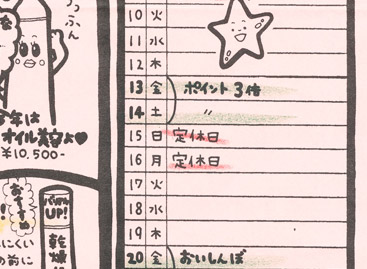 うっふん
今年は
オイル美容よ♥
¥10,500-
おすすめ
UP!
乾燥
にくい
の前に
10 火
11 水
12 木
13 金 ポイント3倍
14 土 〃
15 日 定休日
16 月 定休日
17 火
18 水
19 木
20 金 おいしんぼ